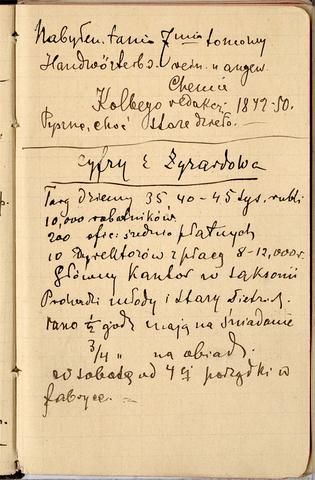 Nabyłem tanio 7mio tomowy
Handwörterb. rein. u angew.
Chemie
Kolbego redakcj. 1842-50.
Pyszne, choć stare dzieło.
Cyfry z Żyrardowa
Targ dzienny 35, 40-45 tys. rubli
10,000 robotników
200 ofic. średnio płatnych
10 dyrektorów z płacą 8-12,000 r.
Główny Kantor w Saksonii
Prowadzi młody i stary Dietrich.
rano ½ godz mają na śniadanie
3/4 " na obiad.
w sobotę od 4ej porządki w
fabryce. —